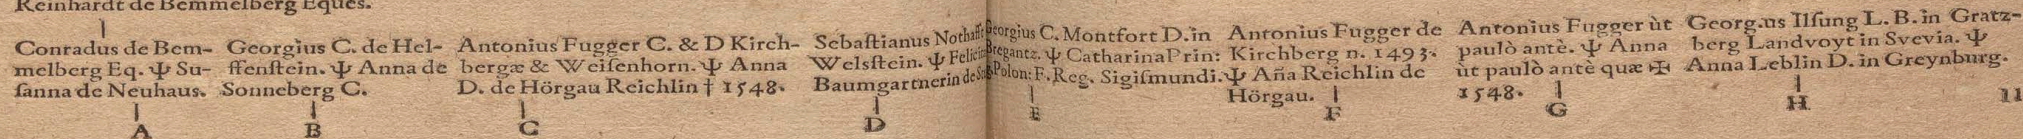 Reinhardt de Bemmelberg Eques.
Conradus de Bem-
melberg Eq. Ψ Su-
sanna de Neuhaus.
A
Georgius C. de Hel-
ffenstein. Ψ Anna de
Sonneberg C.
B
Antonius Fugger C. & D Kirch-
bergæ & Weisenhorn. Ψ Anna
D. de Hörgau Reichlin † 1548.
C
Sebastianus
Welsstein. Ψ
Baumgartnerin de
D
Georgius C. Montfort D. in
Bregantz. Ψ Catharina Prin:
Polon: F. Reg. Sigismundi.
E
Antonius Fugger de
Kirchberg n. 1493.
Ψ Aña Reichlin de
Hörgau.
F
Antonius Fugger ùt
paulò antè. Ψ Anna
ùt paulò antè quæ ✠
1548.
G
Georg.us Ilsung L. B. in Gratz-
berg Landvoyt in Svevia. Ψ
Anna Leblin D. in Greynburg.
H
11